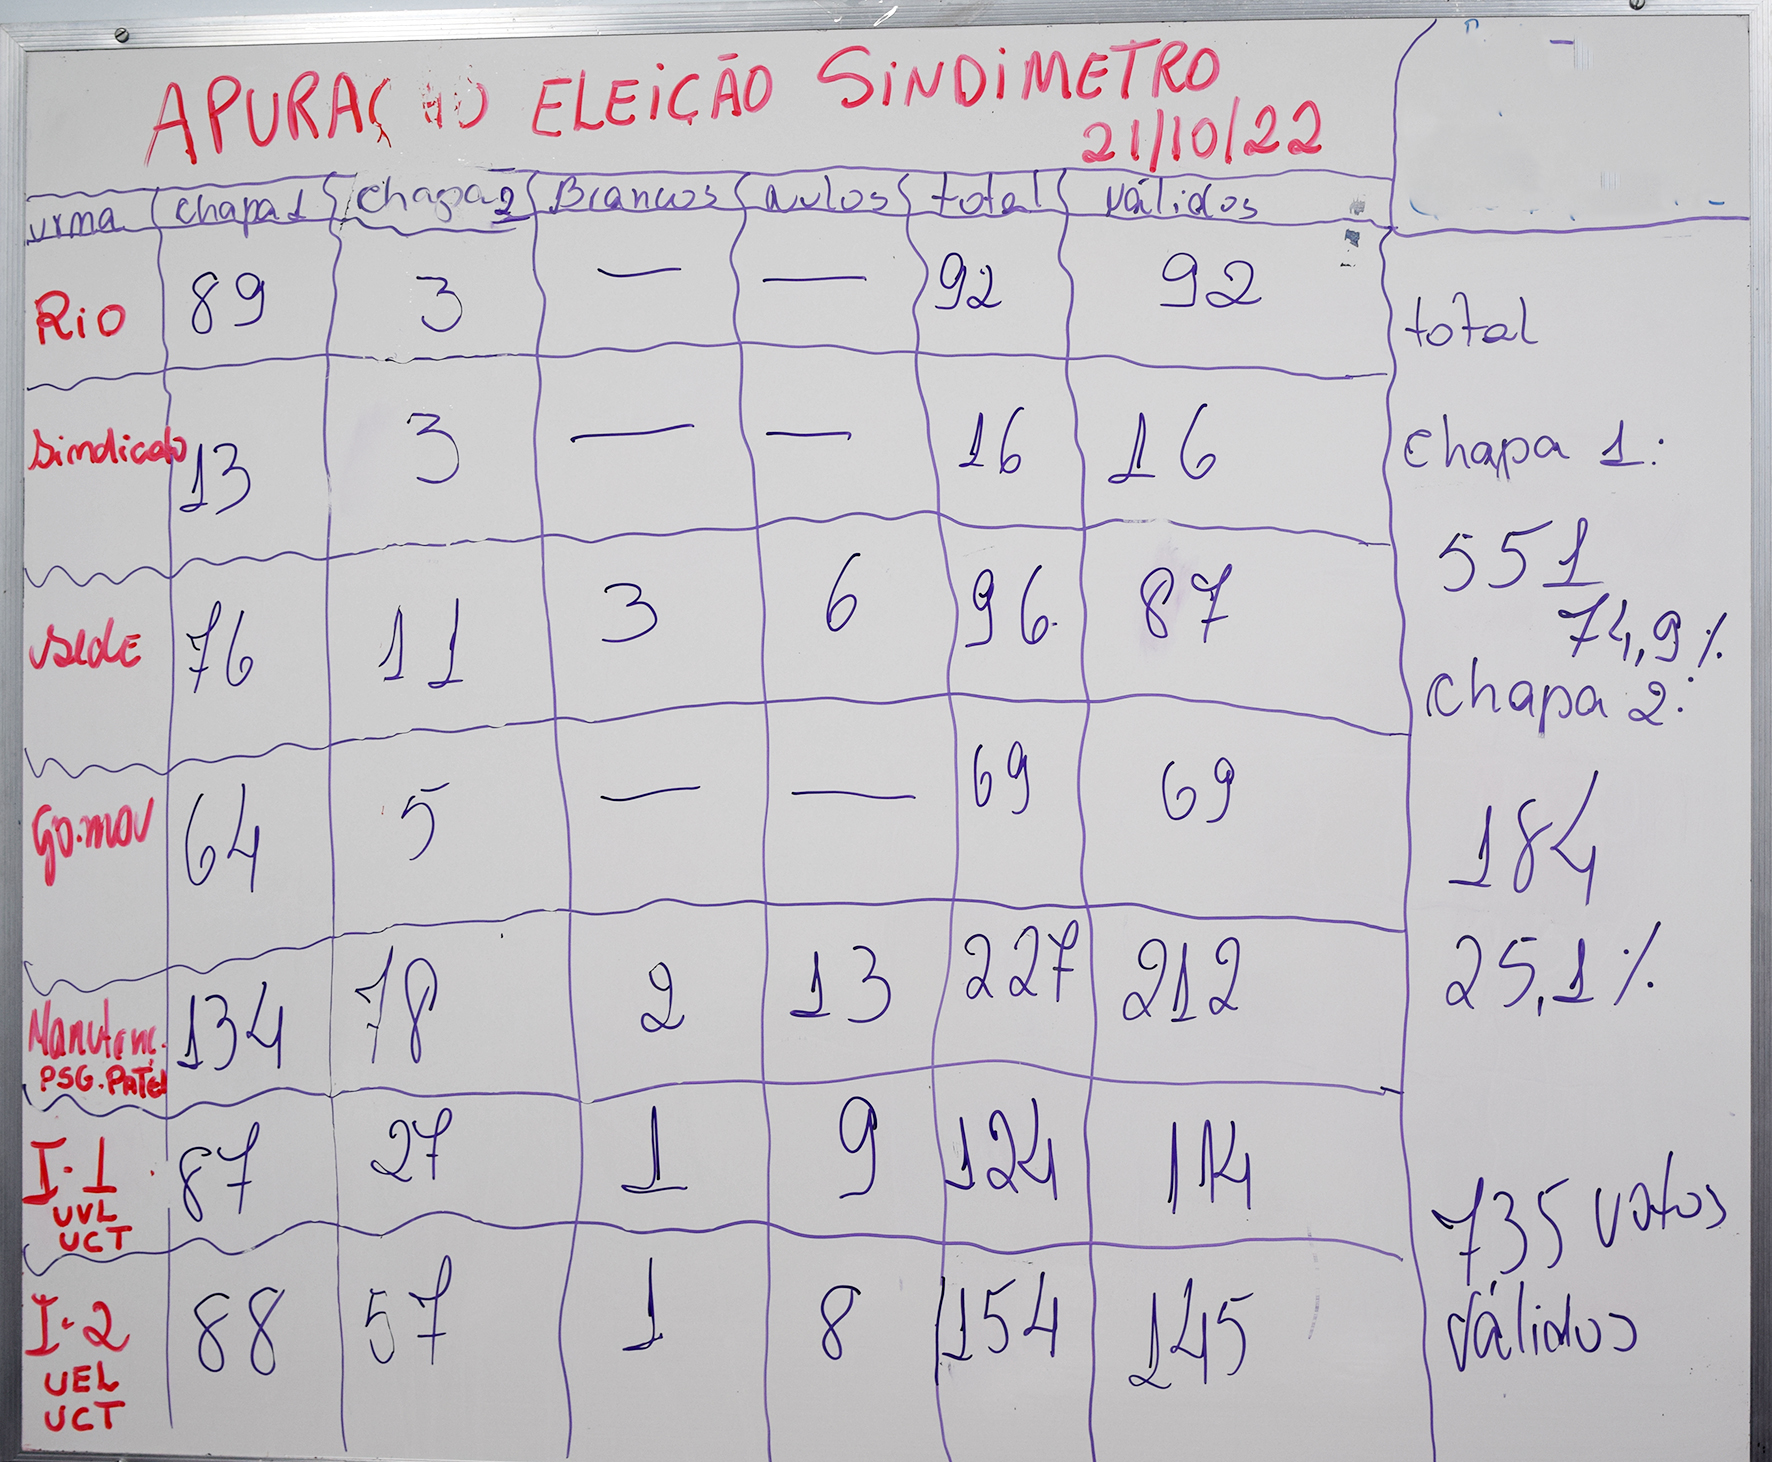 APURAÇÃO ELEIÇÃO SINDIMETRO
21/10/22
urna chapa 1 chapa 2 Brancos nulos total válidos
Rio 89 3 — — 92 92
Sindicato 13 3 — — 16 16
Sede 76 11 3 6 96 87
Go.mov 64 5 — — 69 69
Manutenc. 134 78 2 13 227 212
PSG.PáTEO
I-1 87 27 1 9 124 114
UVL
UCT
I-2 88 57 1 8 154 145
UEL
UCT
total
chapa 1:
551
74,9%
chapa 2:
184
25,1%
735 votos
válidos